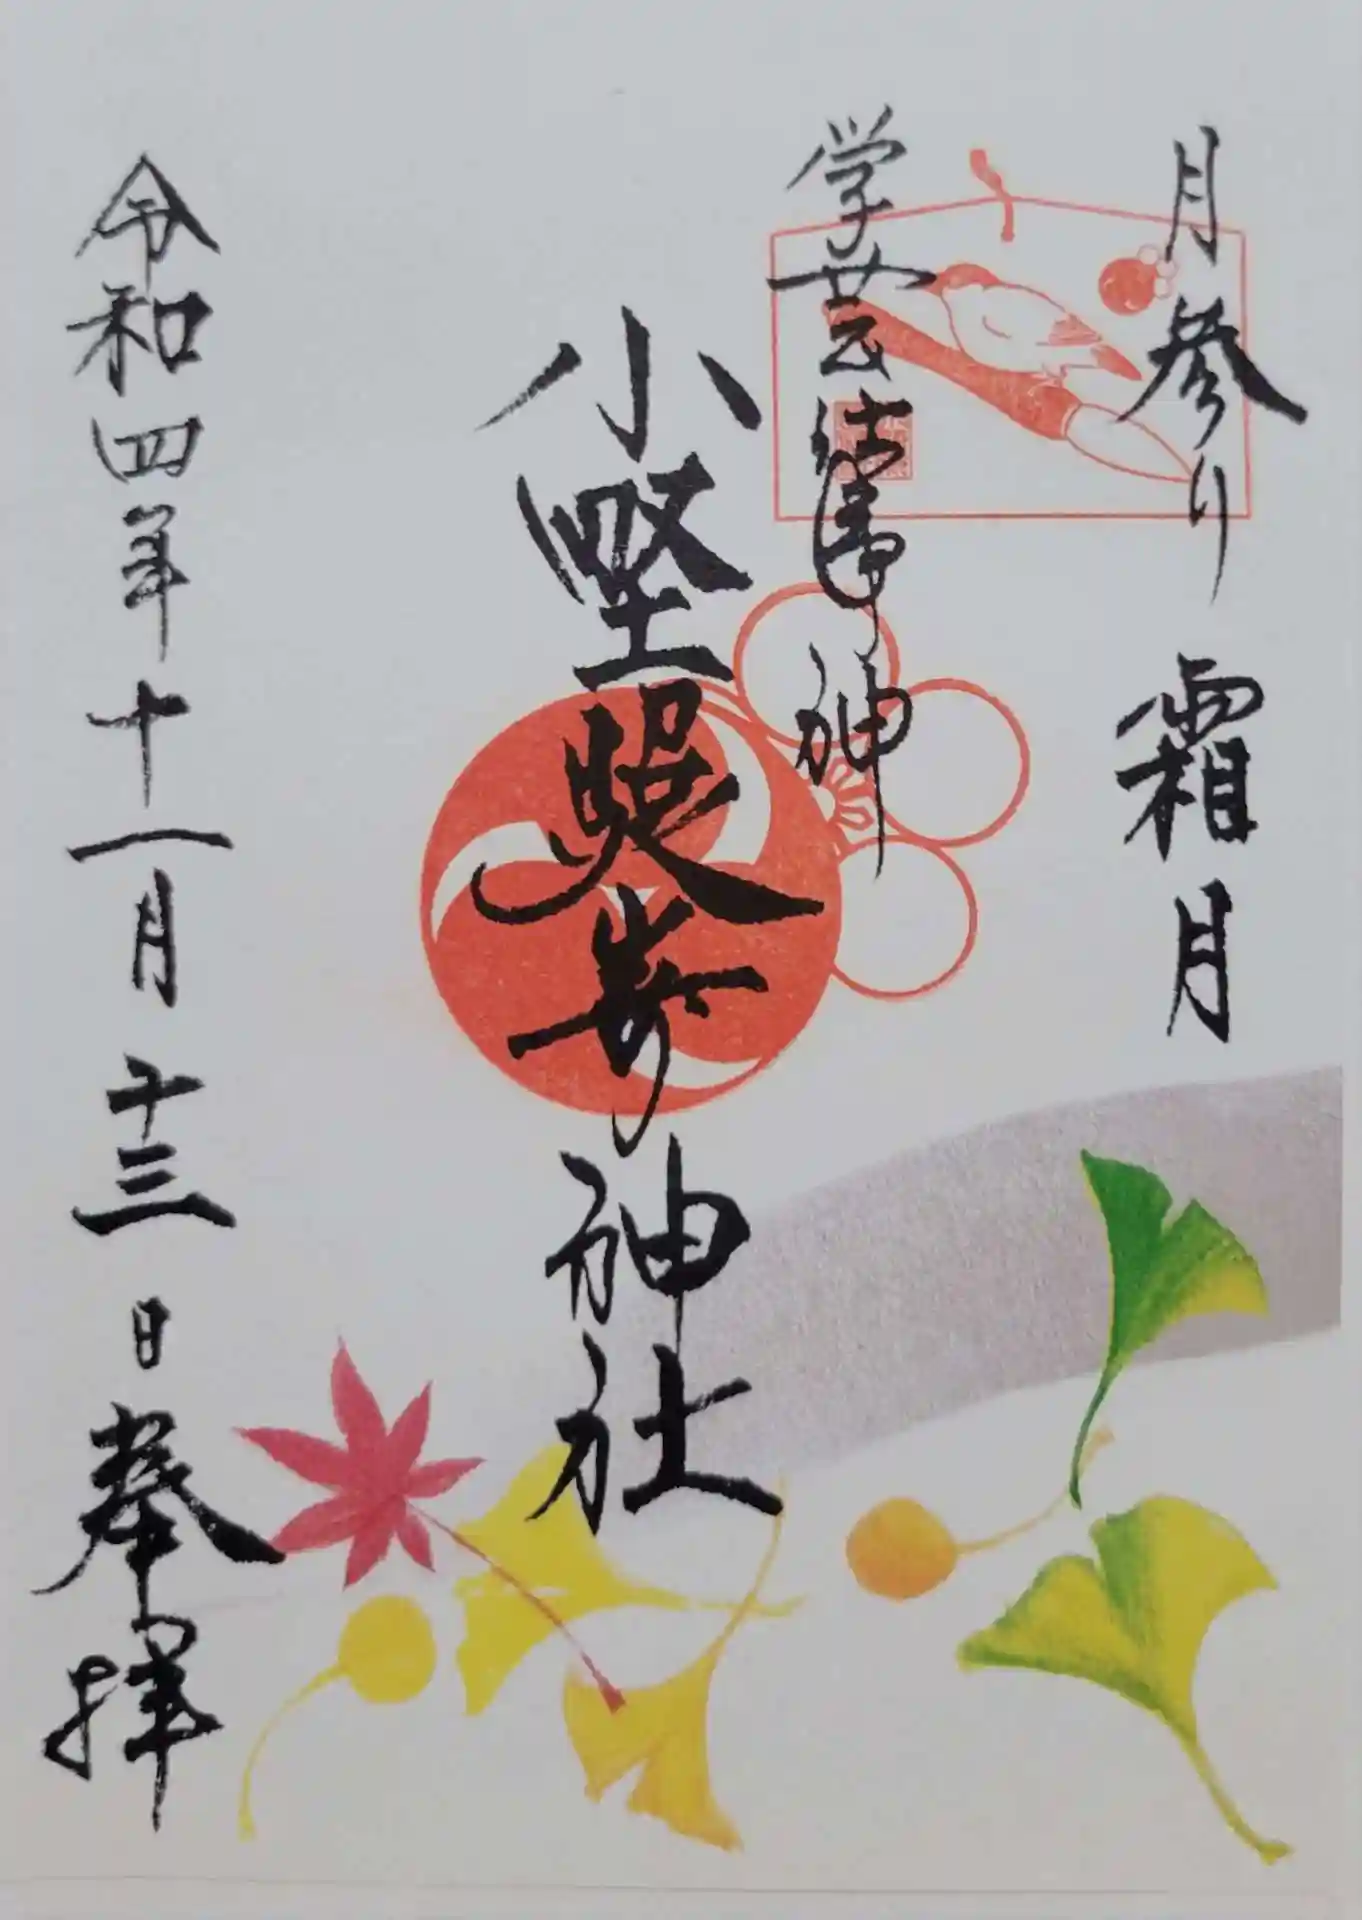 月参り 霜月
学芸 神
小野照崎神社
令和四年十一月二十三日 奉拝